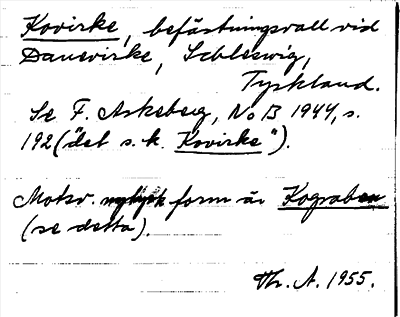 Kovirke, befästningsvall vid
Danevirke, Schleswig,
Tyskland.
Se F. Askeberg, NoB 1944, s.
192 ("det s. k. Kovirke").
Motsv. nytysk form är Kograben
(se detta).
Th. A. 1955.